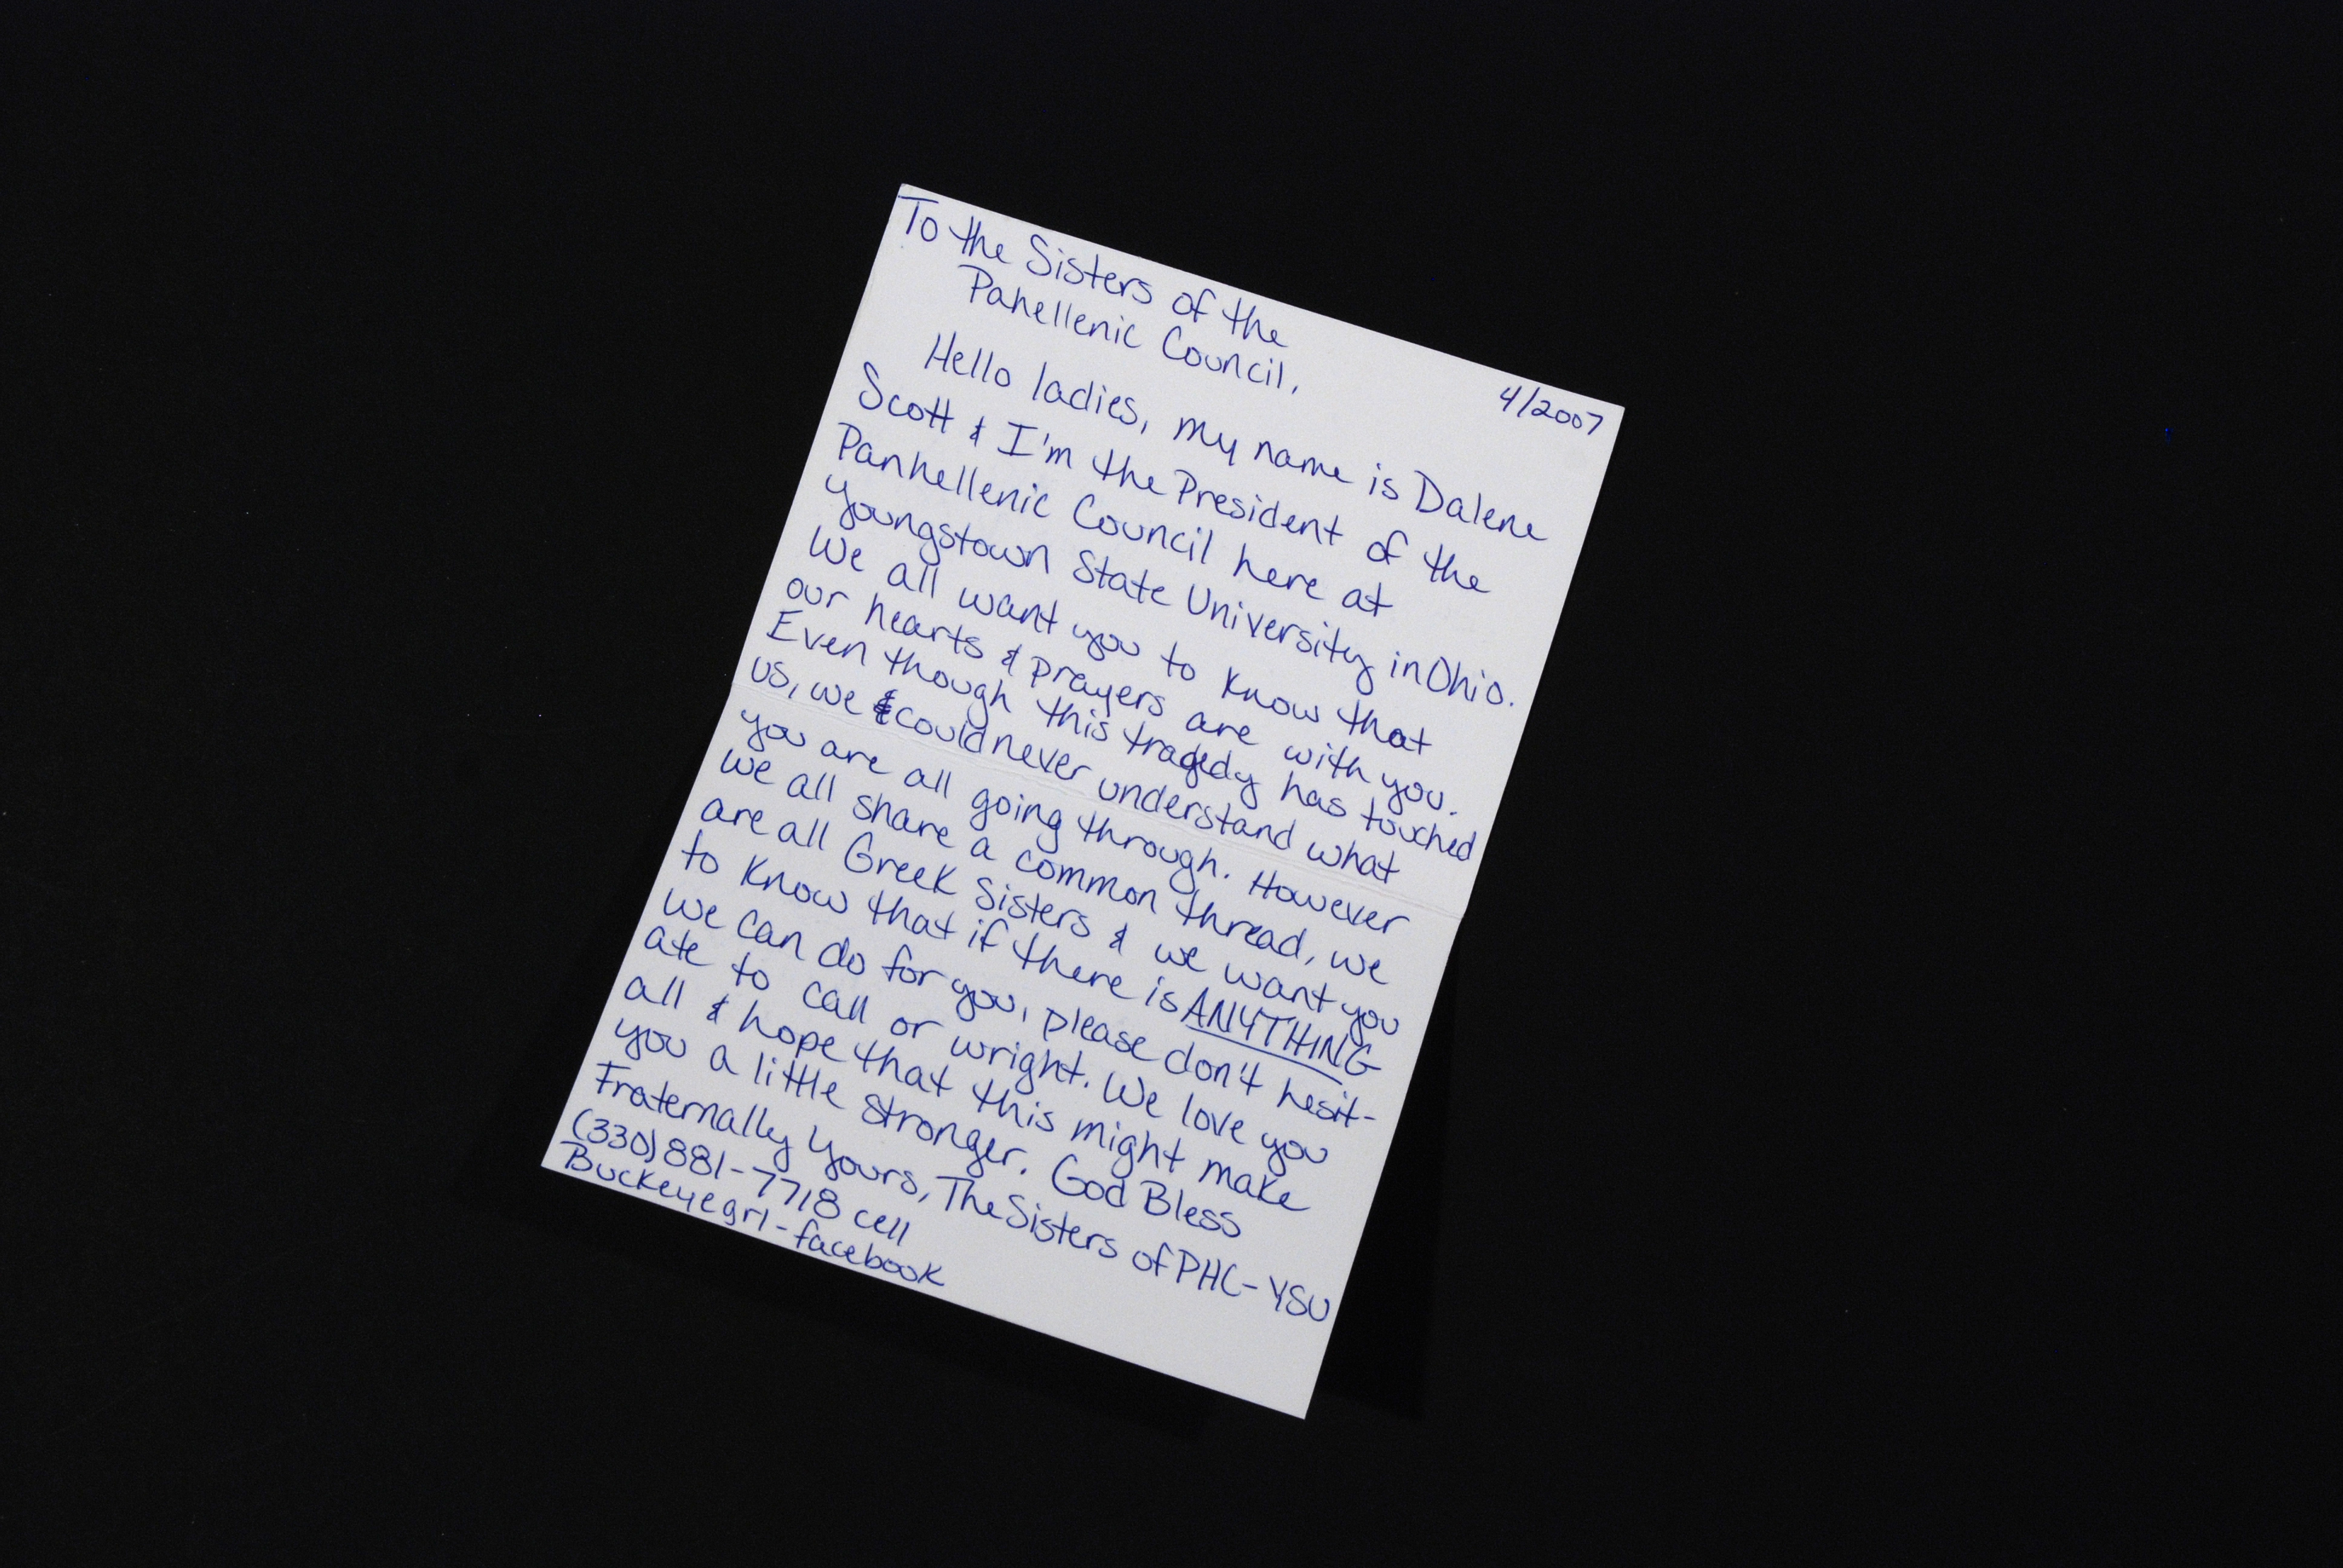 To the Sisters of the
Panellenic Council,
4/2007
Hello ladies, my name is Dalene
Scott & I'm the President of the
Panhellenic Council here at
Youngstown State University in Ohio.
We all want you to know that
our hearts & prayers are with you.
Even though this tragedy has touched
us, we could never understand what
you are all going through. However
we all share a common thread, we
are all Greek Sisters & we want you
to know that if there is ANYTHING
we can do for you, please don't hesit-
ate to call or wright. We love you
all & hope that this might make
you a little stronger. God Bless
Fraternally Yours, The Sisters of PHC-YSU
(330)881-7718 cell
Buckeyegrl-facebook